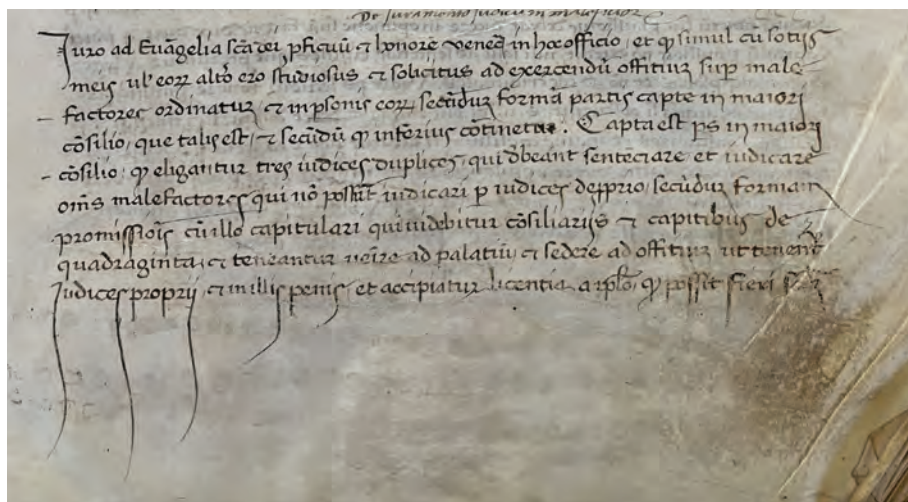 De Juramento Judicum in maleficior
Juro ad Evāgelia scā dei pficuū ⁊ honorē veneꝶ in hoc officio, et ꝙ simul cū sotijs
meis ul' eoꝝ alto ero studiosus ⁊ solicitus ad exercendū offitiuꝫ sup male
factores ordinatuꝫ ⁊ in psonis eoꝝ, secūduꝫ formā partis capte in maiori
cōsilio, que talis est, ⁊ secūdū ꝙ inferius cōtinetur. Capta est ps in maiorj
cōsilio, ꝙ eligantur tres iudices duplices, qui dbeant sentēciare et iudicare
om̄s malefactores qui nō possūt iudicari p iudices de pprio, secūduꝫ formam
promissiōis cū illo capitulari qui uidebitur cōsiliarijs ⁊ capitibus de
quadraginta, ⁊ teneantur uēire ad palatiū, ⁊ sedere ad offitiuꝫ ut tenent
Judices proprij ⁊ in illis penis, et accipiatur licentia a ꝙ possit fieri